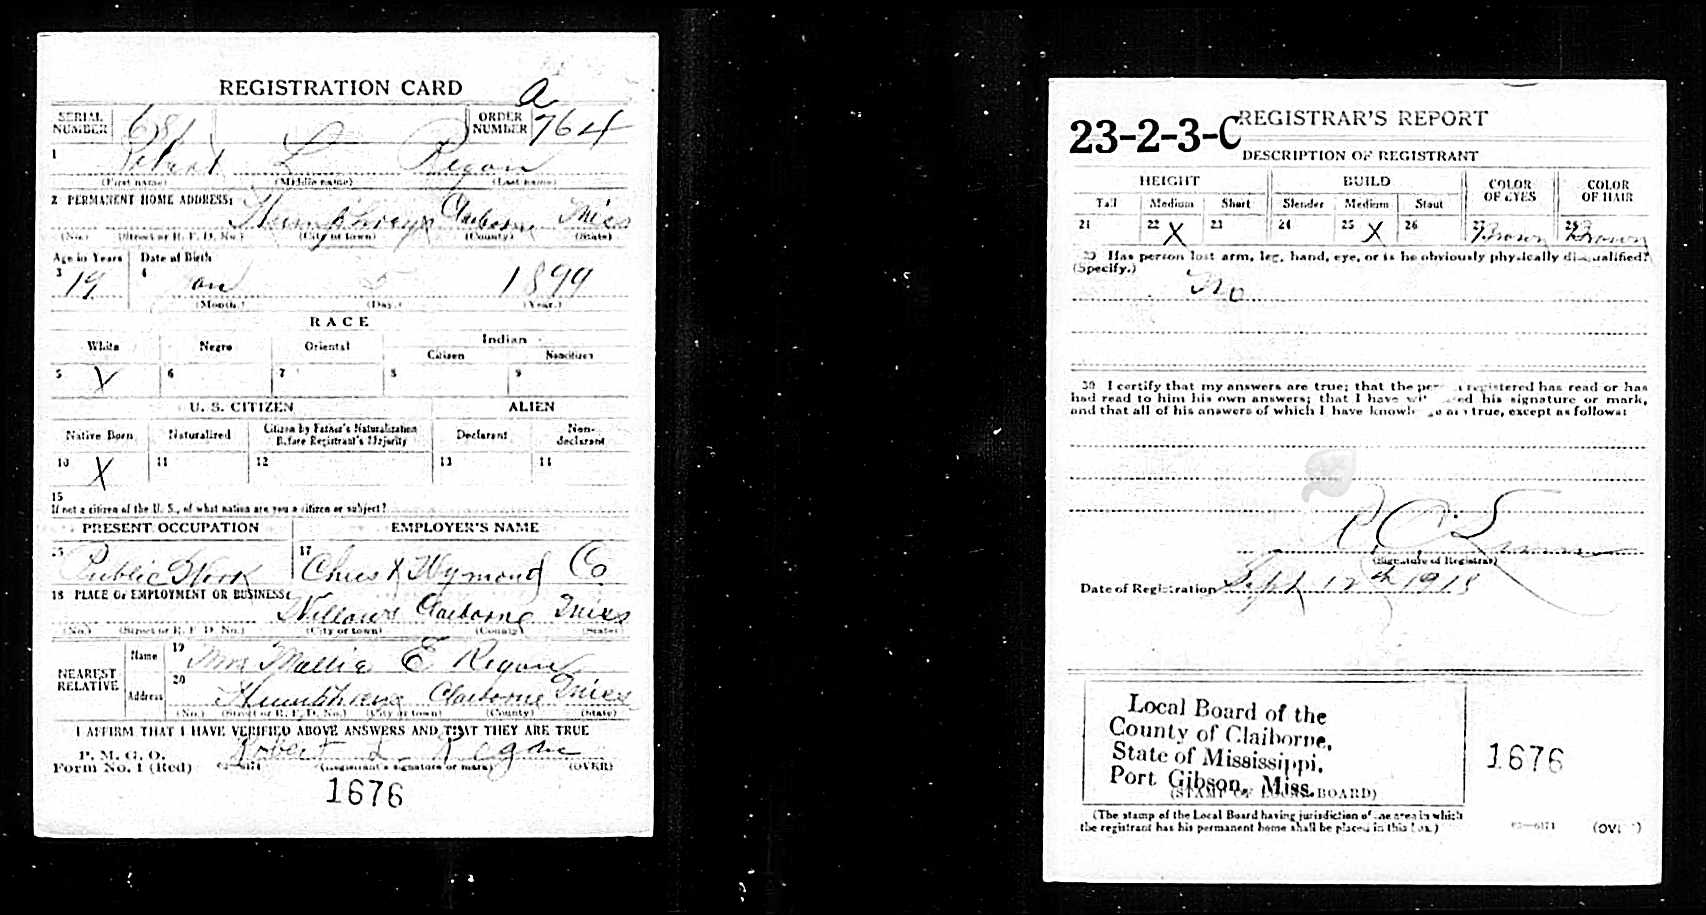 REGISTRATION CARD
a
SERIAL NUMBER 681 ORDER NUMBER 764
1 Robert L Regan
(First name) (Middle name) (Last name)
2 PERMANENT HOME ADDRESS: Humphreys Claiborne Miss
(No.) (Street or R. F. D. No.) (City or town) (County) (State)
Age in Years Date of Birth
3 19 4 Jan 5 1899
(Month.) (Day.) (Year.)
RACE
White Negro Oriental Indian
Citizen Noncitizen
5 X 6 7 8 9
U. S. CITIZEN ALIEN
Native Born Naturalized Citizen by Father's Naturalization Before Registrant's Majority Declarant Non-declarant
10 X 11 12 13 14
15
If not a citizen of the U. S., of what nation are you a citizen or subject?
PRESENT OCCUPATION EMPLOYER'S NAME
16 Public Work 17 Wymond Co
18 PLACE OF EMPLOYMENT OR BUSINESS:
Willows Claiborne Miss
(No.) (Street or R. F. D. No.) (City or town) (County) (State)
NEAREST RELATIVE
Name 19 Mrs Mallie E Regan
Address 20 Humphreys Claiborne Miss
(No.) (Street or R. F. D. No.) (City or town) (County) (State)
I AFFIRM THAT I HAVE VERIFIED ABOVE ANSWERS AND THAT THEY ARE TRUE
P. M. G. O.
Form No. 1 (Red) Robert L Regan
(Registrant's signature or mark) (OVER)
1676
23-2-3-C
REGISTRAR'S REPORT
DESCRIPTION OF REGISTRANT
HEIGHT BUILD COLOR OF EYES COLOR OF HAIR
Tall Medium Short Slender Medium Stout
21 22 X 23 24 25 X 26 27 Brown 28 Brown
29 Has person lost arm, leg, hand, eye, or is he obviously physically disqualified?
(Specify.) No
30 I certify that my answers are true; that the person registered has read or has
had read to him his own answers; that I have witnessed his signature or mark,
and that all of his answers of which I have knowledge are true, except as follows:
(Signature of Registrar)
Date of Registration Sept 12th 1918
Local Board of the
County of Claiborne,
State of Mississippi,
Port Gibson, Miss.
(STAMP OF LOCAL BOARD)
1676
(The stamp of the Local Board having jurisdiction of the area in which
the registrant has his permanent home shall be placed in this box.)
03—6171 (OVER)